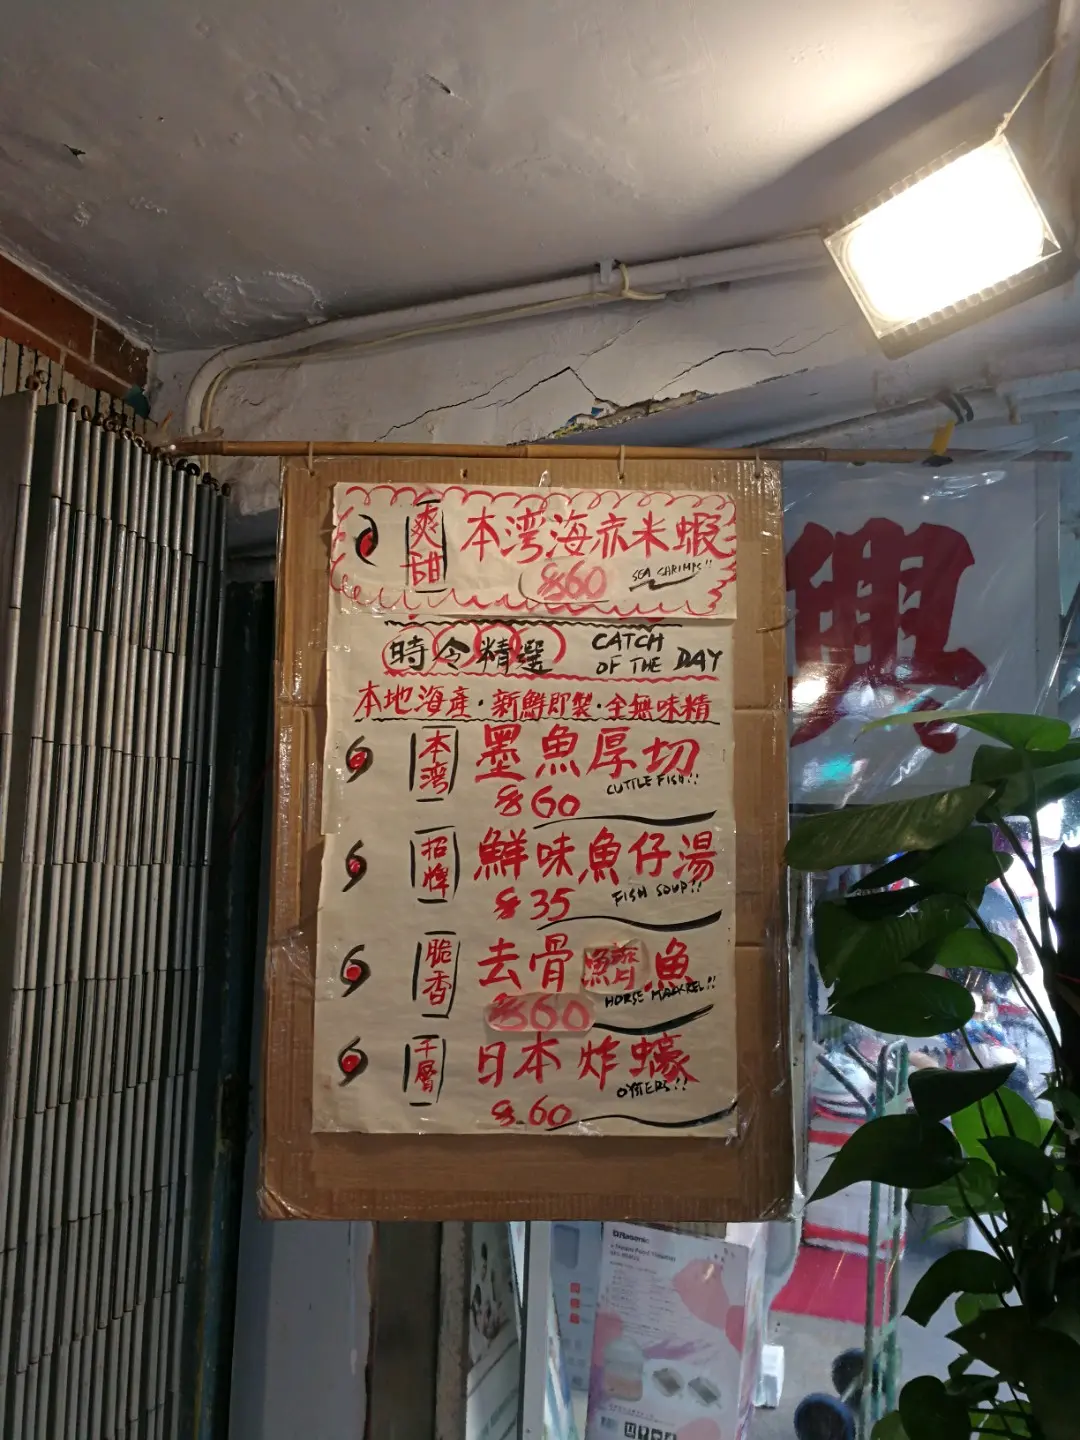 爽甜 本湾海赤米蝦
$60 SEA SHRIMPS!!
時令精選 CATCH OF THE DAY
本地海產·新鮮即製·全無味精
本湾 墨魚厚切
$60 CUTTLE FISH!!
招牌 鮮味魚仔湯
$35 FISH SOUP!!
脆香 去骨鱭魚
$60 HORSE MACKREL!!
千層 日本炸蠔
$60 OYSTERS!!
興
Rasonic